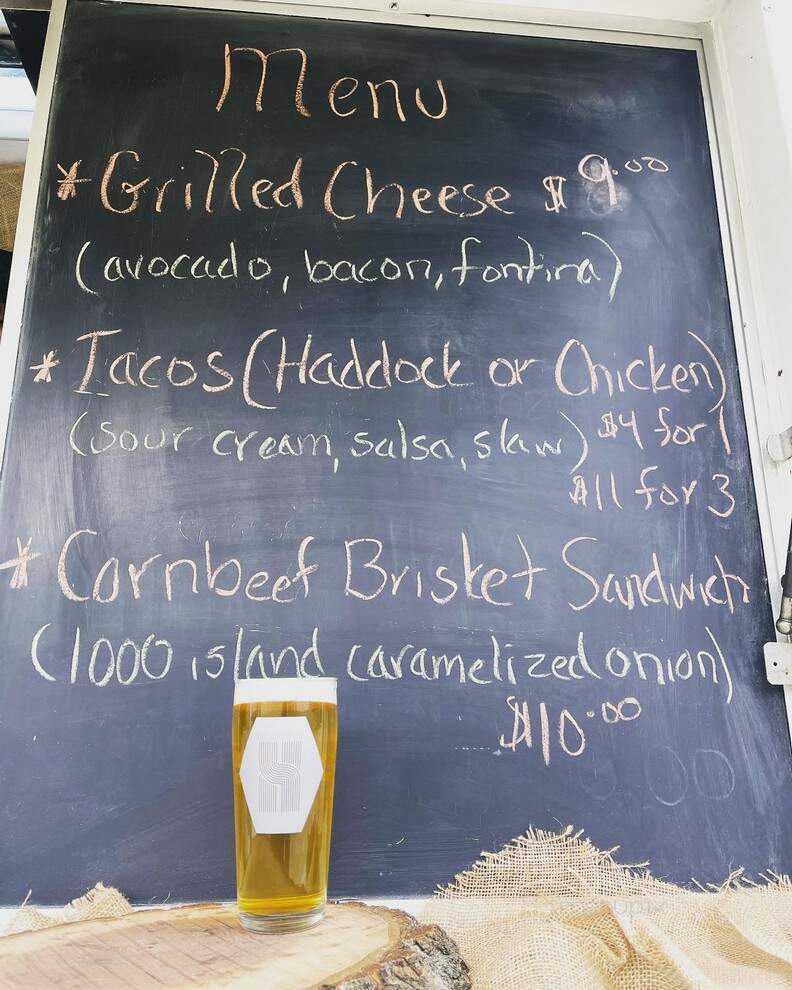 Menu
* Grilled Cheese $9.00
(avocado, bacon, fontina)
* Tacos (Haddock or Chicken)
(sour cream, salsa, slaw) $4 for 1
$11 for 3
* Cornbeef Brisket Sandwich
(1000 island caramelized onion)
$10.00